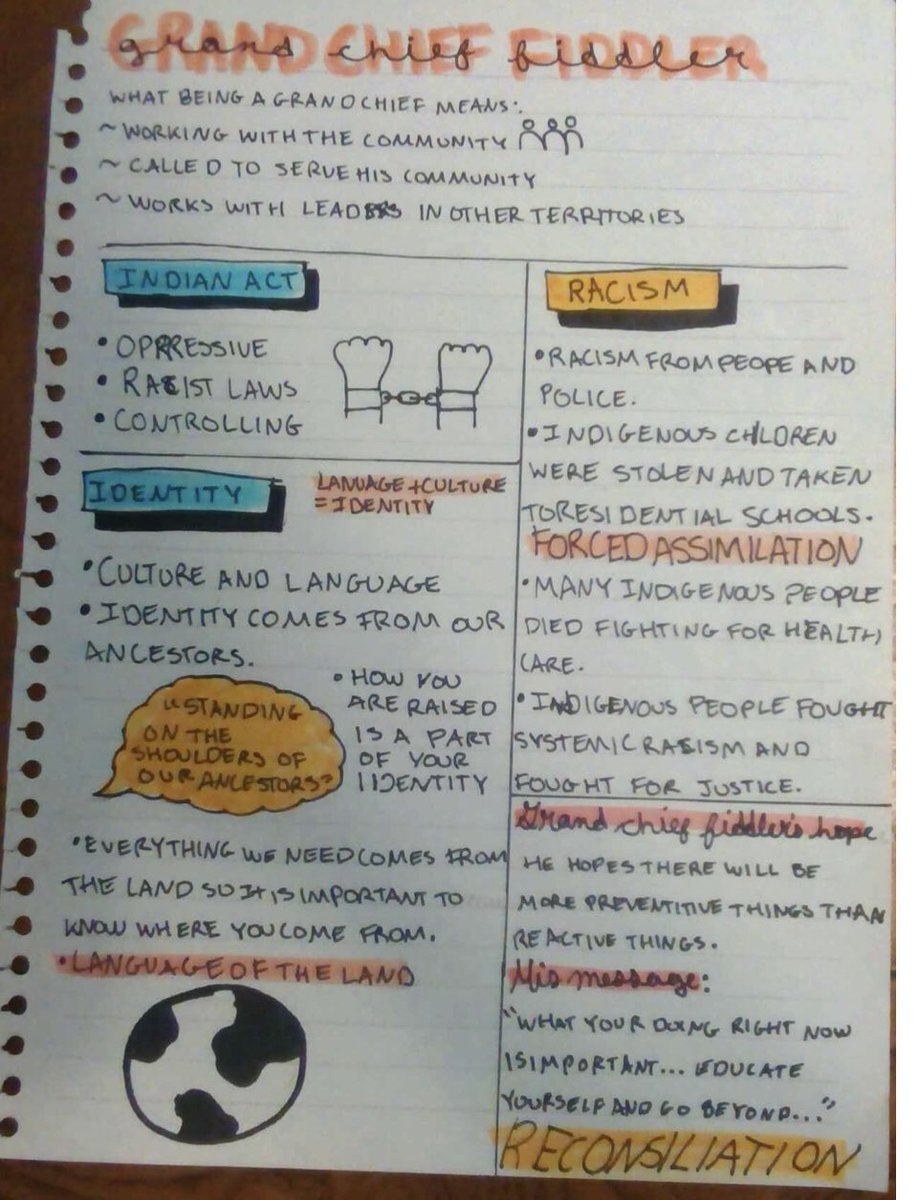 GRAND CHIEF FIDDLER
grand chief fiddler
WHAT BEING A GRAND CHIEF MEANS:
~ WORKING WITH THE COMMUNITY
~ CALLED TO SERVE HIS COMMUNITY
~ WORKS WITH LEADERS IN OTHER TERRITORIES
INDIAN ACT
• OPPRESSIVE
• RACIST LAWS
• CONTROLLING
IDENTITY
LANUAGE + CULTURE
= IDENTITY
• CULTURE AND LANGUAGE
• IDENTITY COMES FROM OUR
ANCESTORS.
"STANDING
ON THE
SHOULDERS OF
OUR ANCESTORS"
• HOW YOU
ARE RAISED
IS A PART
OF YOUR
IDENTITY
• EVERYTHING WE NEED COMES FROM
THE LAND SO IT IS IMPORTANT TO
KNOW WHERE YOU COME FROM.
• LANGUAGE OF THE LAND
RACISM
• RACISM FROM PEOPE AND
POLICE.
• INDIGENOUS CHLOREN
WERE STOLEN AND TAKEN
TO RESIDENTIAL SCHOOLS.
FORCED ASSIMILATION
• MANY INDIGENOUS PEOPLE
DIED FIGHTING FOR HEALTH
CARE.
• INDIGENOUS PEOPLE FOUGHT
SYSTEMIC RACISM AND
FOUGHT FOR JUSTICE.
Grand chief fiddler's hope
HE HOPES THERE WILL BE
MORE PREVENTITIVE THINGS THAN
REACTIVE THINGS.
His message:
"WHAT YOUR DOING RIGHT NOW
IS IMPORTANT... EDUCATE
YOURSELF AND GO BEYOND..."
RECONSILIATION